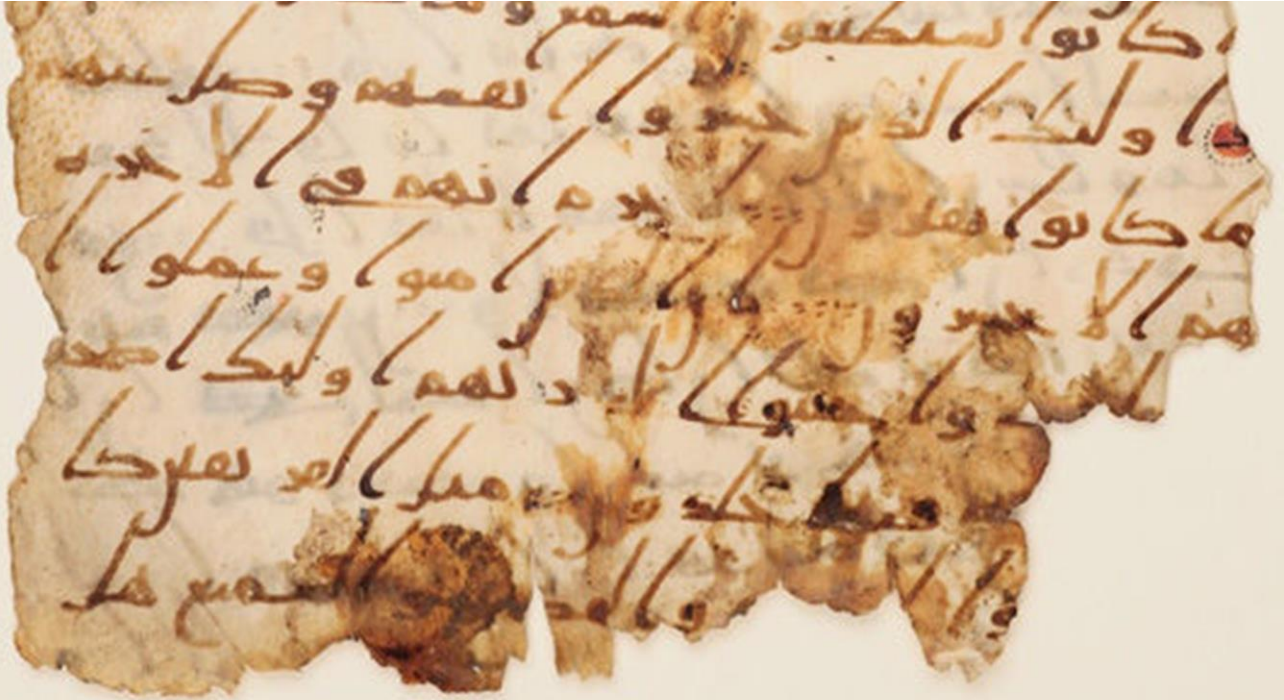 كانوا يستطيعون السمع وما
اولئك الذين خسروا انفسهم وضل عنهم
ما كانوا يفترون لا جرم انهم في الاخره
هم الاخسرون ان الذين امنوا وعملوا ا
واخبتوا الى ربهم اولئك اصحب
فيها خلدون مثل الفريقين كا
وا والبصير والسميع هل